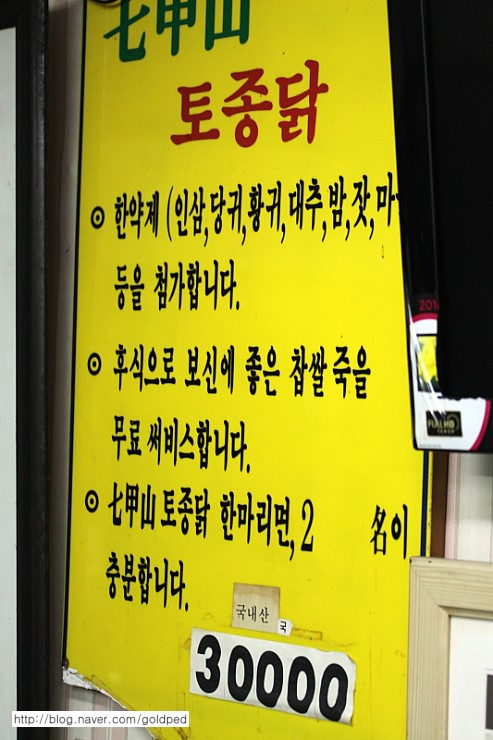 七甲山
토종닭
⊙ 한약제 (인삼,당귀,황귀,대추,밤,잣,마
등을 첨가합니다.
⊙ 후식으로 보신에 좋은 찹쌀죽을
무료 써비스합니다.
⊙ 七甲山 토종닭 한마리면, 2 名이
충분합니다.
국내산 국
30000
201
FULL HD
http://blog.naver.com/goldped